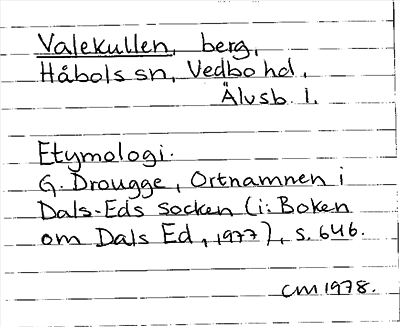 Valekullen, berg,
Håbols sn, Vedbo hd,
Älvsb. l.
Etymologi.
G. Drougge, Ortnamnen i
Dals-Eds socken (i: Boken
om Dals Ed, 1977), s. 646.
CM 1978.